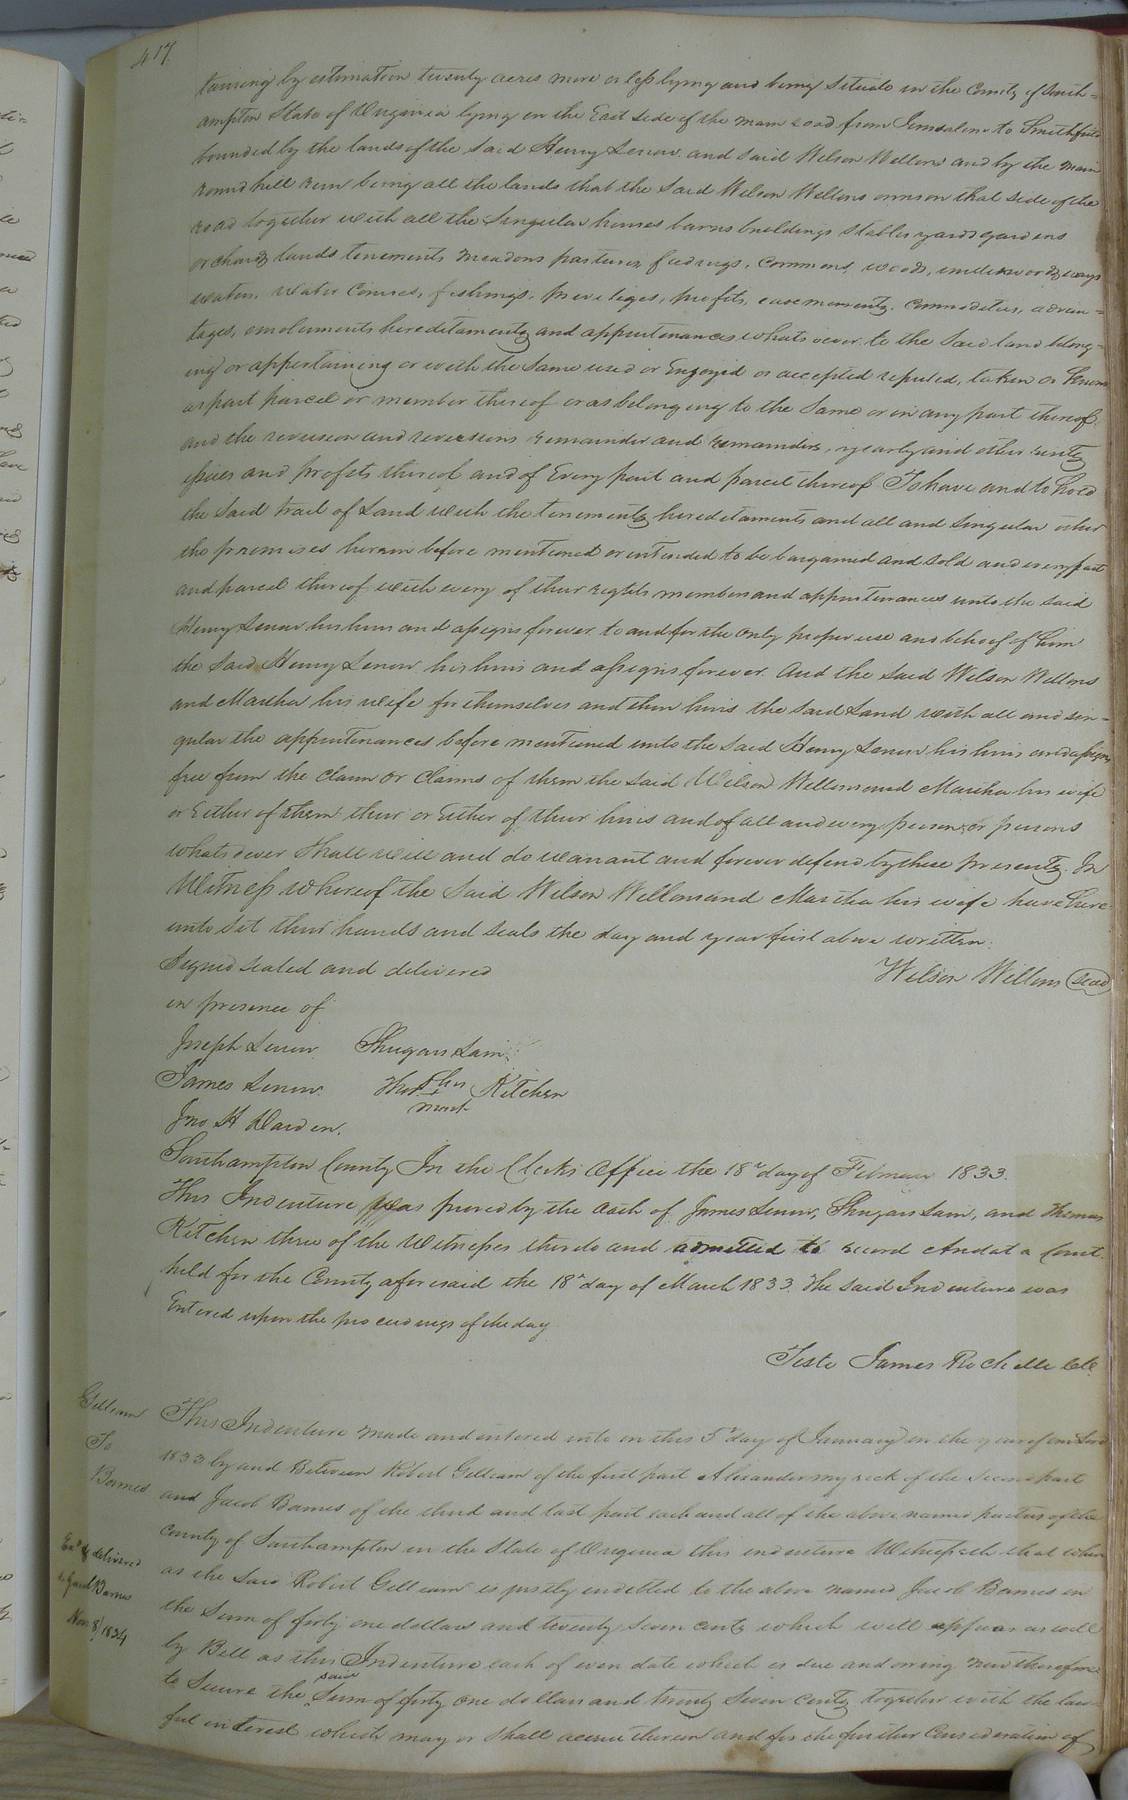 417.
taining by estimation twenty acres more or less lying and being situate in the County of South=
ampton State of Virginia lying on the East side of the main road from Jerusalem to Smithfield
bounded by the lands of the said Henry Lenow and said Wilson Wellons and by the main
round hill run being all the lands that the said Wilson Wellons owns on that side of the
road together with all the singular houses barns buildings stables yards gardens
orchards lands tenements meadows pastures feedings, commons, woods, underwoods ways
waters, water courses, fishings, priviliges, profits, easements, commodities, advan=
tages, emoluments hereditaments and appurtenances whatsoever to the said land belong=
ing or appertaining or with the same used or Enjoyed or accepted reputed, taken or Known
as part parcel or member thereof or as belonging to the same or in any part thereof
and the reversion and reversions remainder and remainders, yearly and other rents
issues and profits thereof and of Every part and parcel thereof To have and to hold
the said tract of Land with the tenements hereditaments and all and singular other
the premises herein before mentioned or intended to be bargained and sold and every part
and parcel thereof with every of their rights members and appurtenances unto the said
Henry Lenow his heirs and assigns forever to and for the only proper use and behoof of him
the said Henry Lenow his heirs and assigns forever. And the said Wilson Wellons
and Martha his wife for themselves and their heirs the said Land with all and sin=
gular the appurtenances before mentioned unto the said Henry Lenow his heirs and assigns
free from the claim or claims of them the said Wilson Wellons and Martha his wife
or Either of them their or Either of their heirs and of all and every person or persons
whatsoever Shall will and do warrant and forever defend by these presents. In
Witness whereof the said Wilson Wellons and Martha his wife have here
unto set their hands and seals the day and year first above written.
Signed sealed and delivered Wilson Wellons seal
in presence of
Joseph Lenow Shugars Lain
James Lenow. Thos his + mark Kitchen
Jno H Darden.
Southampton County In the Clerks Office the 18th day of 1833.
This Indenture was proved by the oath of James Lenow, Shugars Lain, and Thomas
Kitchen three of the Witnesses thereto and admitted to record And at a Court
held for the County aforesaid the 18th day of March 1833. The said Indenture was
Entered upon the proceedings of the day
Teste James Rochelle
Gilliam
To
Barnes
This Indenture made and entered into on this 5th day of January in the year of our Lord
1833 by and Between Robert Gilliam of the first part Alexander Myrick of the second part
and Jacob Barnes of the third and last part each and all of the above named parties of the
County of Southampton in the State of Virginia this indenture Witnesseth that where
as the said Robert Gilliam is justly indetted to the above named Jacob Barnes in
the Sum of forty one dollars and twenty seven cents which will appear as well
by Bill as this Indenture each of even date which is due and owing now therefore
to Secure the said Sum of forty one dollars and twenty Seven cents together with the law
ful interest which may or shall accrue thereon and for the further Consideration of
Exd & delivered
to Jacob Barnes
Nov. 8 / 1834